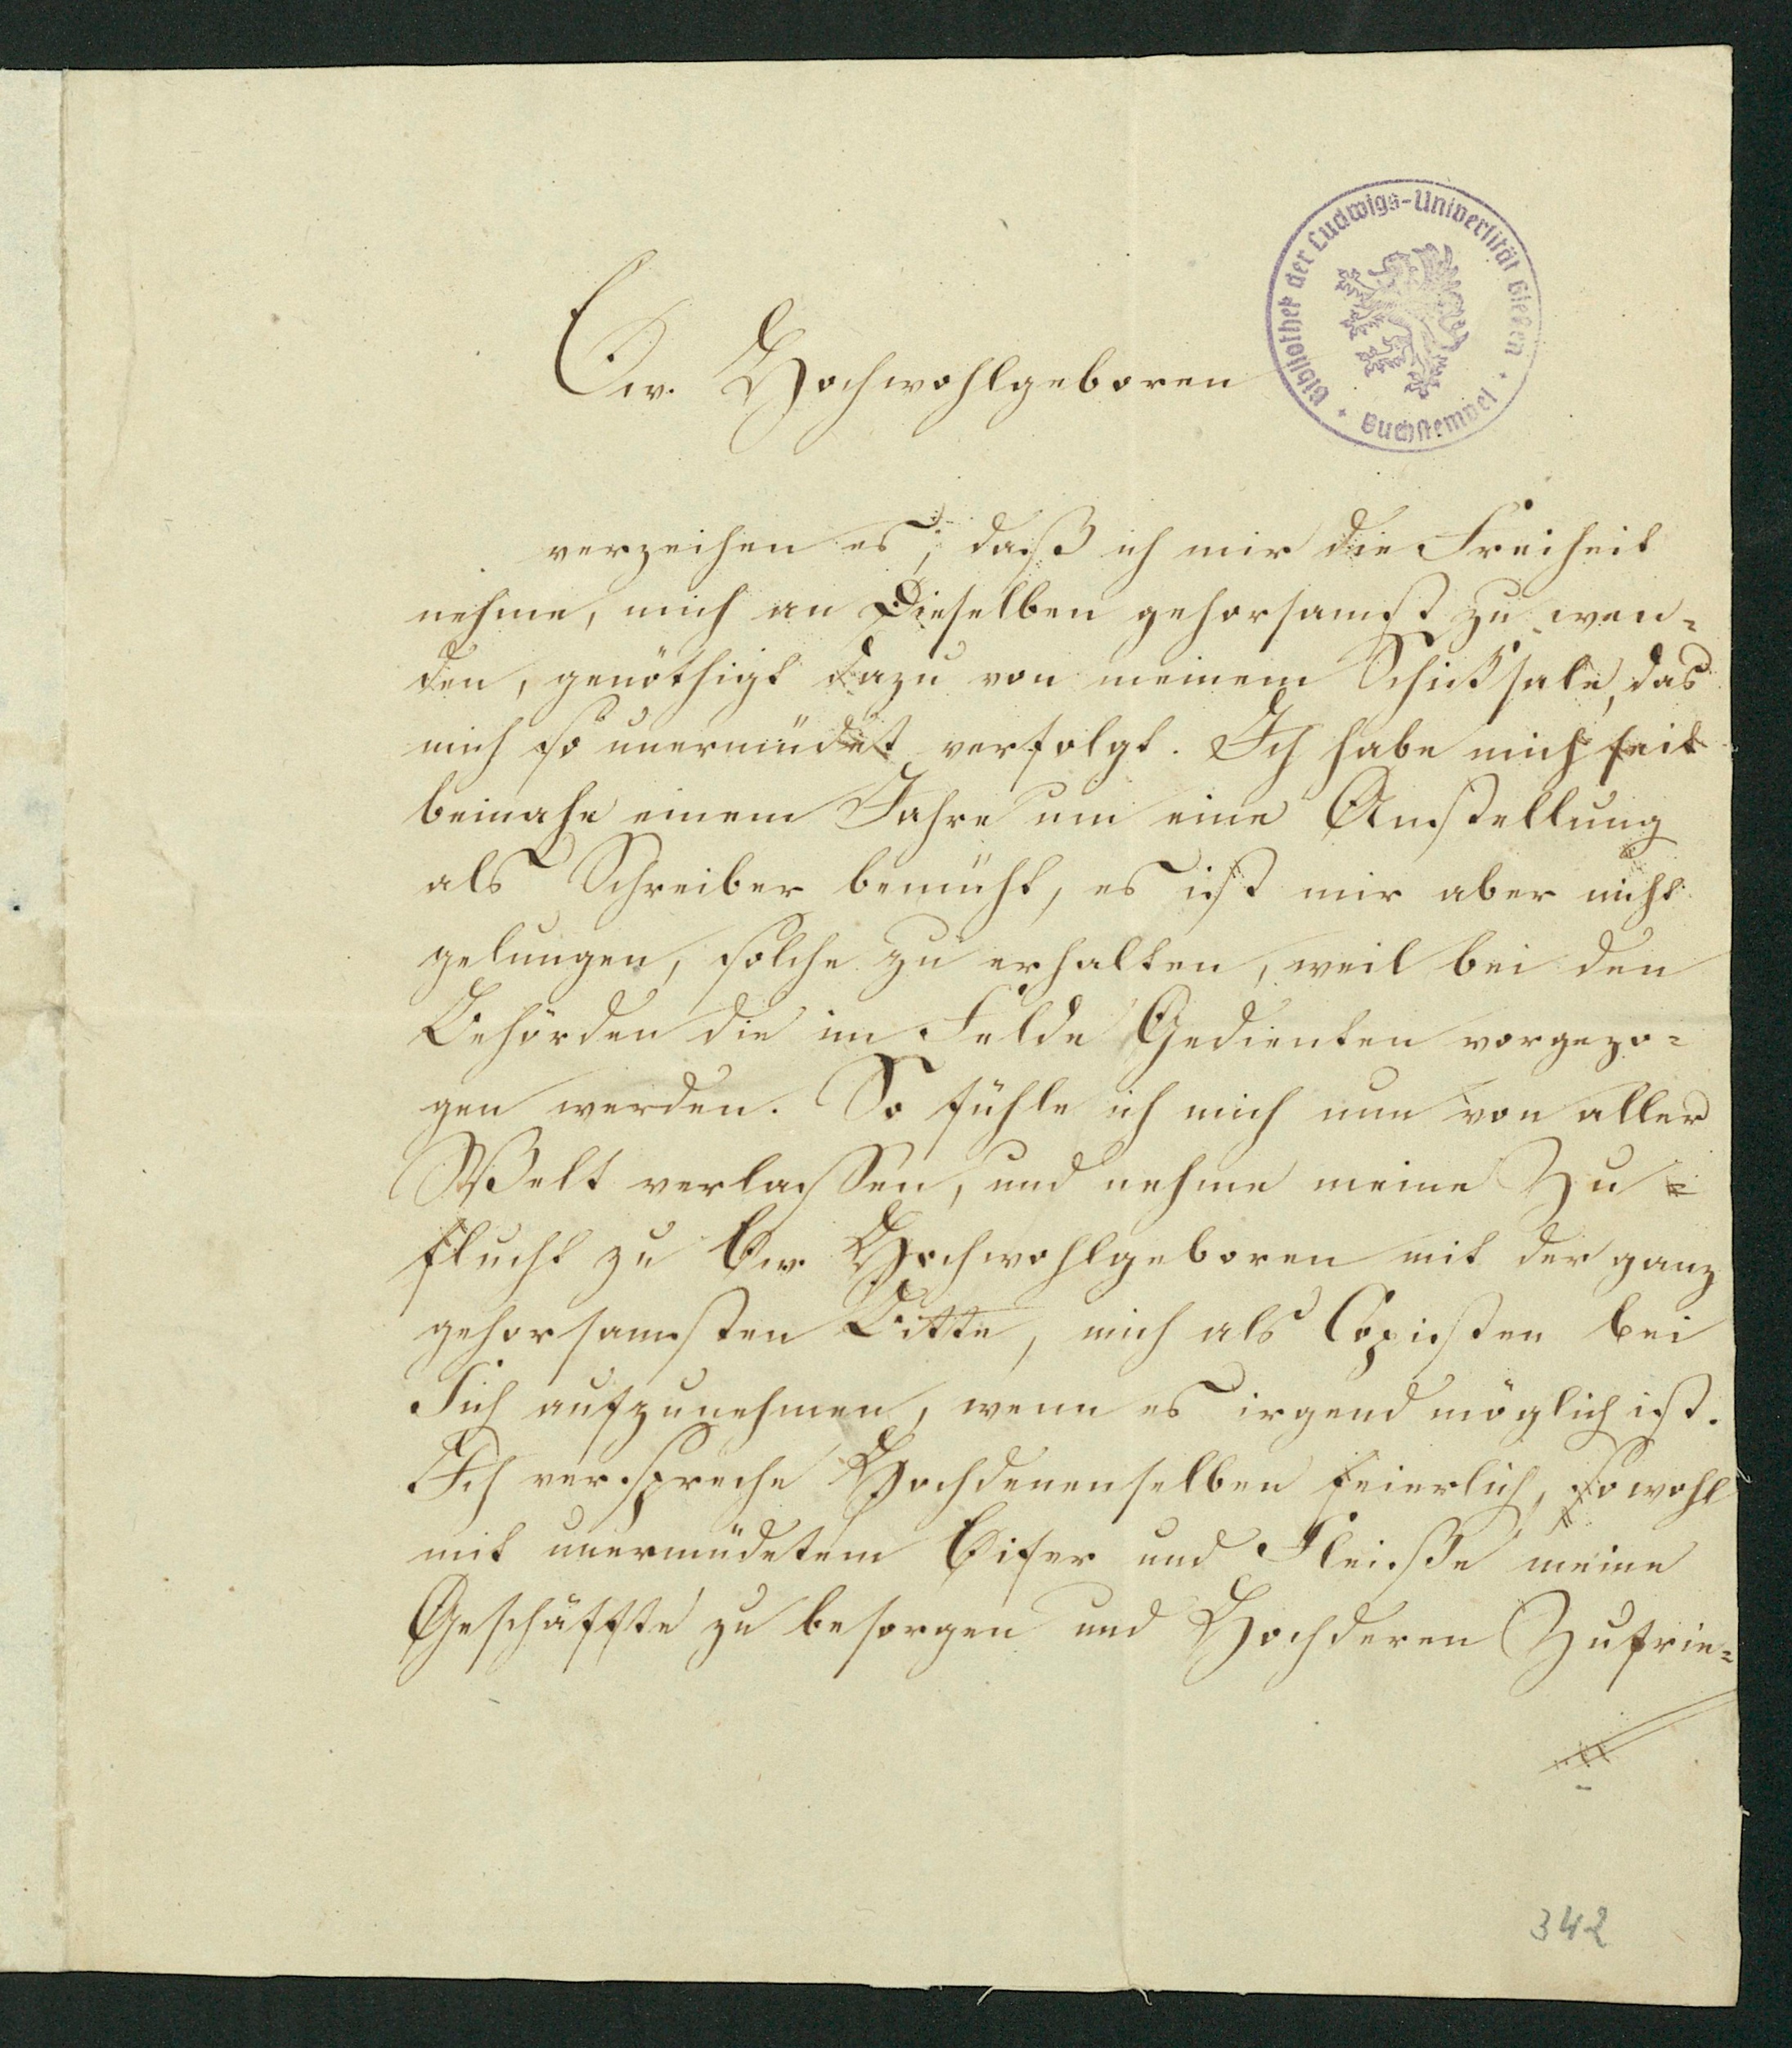 Bibliothek der Ludwigs-Universität Gießen
Buchstempel
Ew. Hochwohlgeboren
verzeihen es, daß ich mir die Freiheit
nehme, mich an Dieselben gehorsamst zu wen=
den, genöthigt dazu von meinem Schicksale, das
mich so unermüdet verfolgt. Ich habe mich seit
beinahe einem Jahre um eine Anstellung
als Schreiber bemüht, es ist mir aber nicht
gelungen, solche zu erhalten, weil bei den
Behörden die im Felde Gedienten vorgezo=
gen werden. So fühle ich mich nun von aller
Welt verlassen, und nehme meine Zu=
flucht zu Ew. Hochwohlgeboren mit der ganz
gehorsamsten Bitte, mich als Copisten bei
Sich aufzunehmen, wenn es irgend möglich ist.
Ich verspreche Hochdenenselben feierlich, sowohl
mit unermüdetem Eifer und Fleiße meine
Geschäffte zu besorgen und Hochderen Zufrie=
342